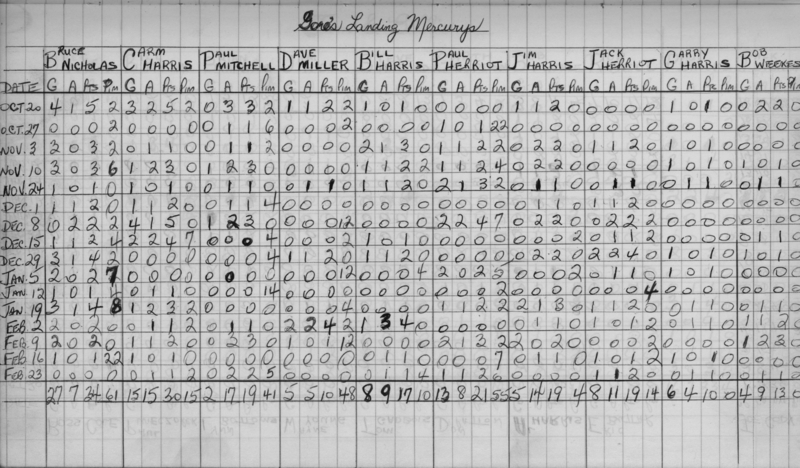 Gore's Landing Mercurys
BRUCE NICHOLAS CARM HARRIS PAUL MITCHELL DAVE MILLER BILL HARRIS PAUL HERRIOT JIM HARRIS JACK HERRIOT GARRY HARRIS BOB WEEKES
DATE G A Pts Pim G A Pts Pim G A Pts Pim G A Pts Pim G A Pts Pim G A Pts Pim G A Pts Pim G A Pts Pim G A Pts Pim G A Pts Pim
OCT 20 4 1 5 2 3 2 5 2 0 3 3 2 1 1 2 2 1 0 1 0 0 0 0 0 1 1 2 0 0 0 0 0 1 0 1 0 0 2 2 0
OCT. 27 0 0 0 2 0 0 0 0 0 1 1 6 0 0 0 2 0 0 0 0 1 0 1 22 0 0 0 0 0 0 0 0 0 0 0 0 0 0 0 0
NOV. 3 2 0 3 2 0 1 1 0 0 1 1 2 0 0 0 0 2 1 3 0 1 1 2 2 0 2 2 0 1 1 2 0 1 0 1 0 0 0 0 0
NOV. 10 3 0 3 6 1 2 3 0 1 2 3 0 0 0 0 0 1 1 2 2 1 1 2 4 0 2 2 0 0 0 0 0 1 0 1 0 1 0 1 0
NOV. 24 1 0 1 0 1 0 1 0 0 1 1 0 0 1 1 0 1 1 2 0 2 1 3 2 0 1 1 0 0 1 1 0 0 1 1 0 0 1 1
DEC. 1 1 1 2 0 1 1 2 0 0 1 1 4 0 0 0 0 0 0 0 0 0 0 0 0 0 1 1 0 1 1 2 0 0 0 0 0 0 0 0 0
DEC. 8 0 2 2 2 4 1 5 0 1 2 3 0 0 0 0 12 0 0 0 0 2 2 4 7 0 2 2 0 0 2 2 2 0 0 0 0 0 0 0 0
DEC. 15 1 1 2 4 2 2 4 7 0 0 0 4 0 0 0 2 1 0 1 0 0 0 0 0 0 0 0 2 0 1 1 2 0 0 0 0 0 1 1 0
DEC. 29 3 1 4 2 0 0 0 0 0 0 0 4 1 1 2 0 1 1 2 0 0 0 0 0 0 2 2 0 2 2 4 0 1 0 1 0 1 0 1 0
JAN. 5 2 0 2 7 0 0 0 0 0 0 0 0 0 0 0 12 0 0 0 4 2 0 2 5 0 0 0 2 0 1 1 0 1 0 1 0 0 0 0 0
JAN. 12 1 0 1 0 0 0 0 0 0 0 14 0 0 0 0 0 0 0 0 0 0 0 2 0 0 0 0 0 0 0 4 0 0 0 0 0 0 0 0
JAN. 19 3 1 4 8 1 2 3 2 0 0 0 0 0 0 0 4 0 0 0 0 1 1 2 2 2 1 3 0 1 1 2 0 0 1 1 0 0 1 1 0
FEB. 2 2 0 2 0 0 1 1 2 0 1 1 0 2 2 4 2 1 3 4 0 0 0 0 0 0 1 1 0 1 0 1 2 0 1 1 0 1 1 2
FEB. 9 2 0 2 0 1 1 2 0 0 2 3 0 1 0 1 12 0 0 0 0 2 1 3 2 2 0 2 0 0 0 0 0 0 0 0 0 1 2 3 0
FEB 16 1 0 1 22 1 0 1 0 0 0 0 0 0 0 0 0 0 1 1 0 0 0 0 7 0 1 1 0 1 0 1 2 1 0 1 0 0 0 0 0
FEB. 23 0 0 0 0 0 1 1 2 0 2 2 5 0 0 0 0 0 1 1 4 1 1 2 0 0 0 0 0 1 1 2 0 0 0 0 0 0 1 1 0
27 7 34 61 15 15 30 15 2 17 19 41 5 5 10 48 8 9 17 10 13 8 21 55 5 14 19 4 8 11 19 14 6 4 10 0 4 9 13 0